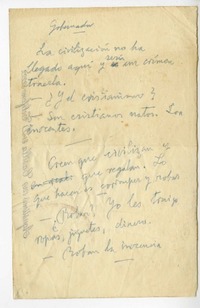 Gobernador
La civilización no ha
llegado aquí y sería un crimen
traerla.
— ¿Y el cristianismo?
— Son cristianos natos. Son
inocentes.
Creen que civilizan y
que regalan. Lo
que hacen es corromper y robar
— ¿Roban? Yo les traigo
ropas, juguetes, dinero.
— Roban la inocencia